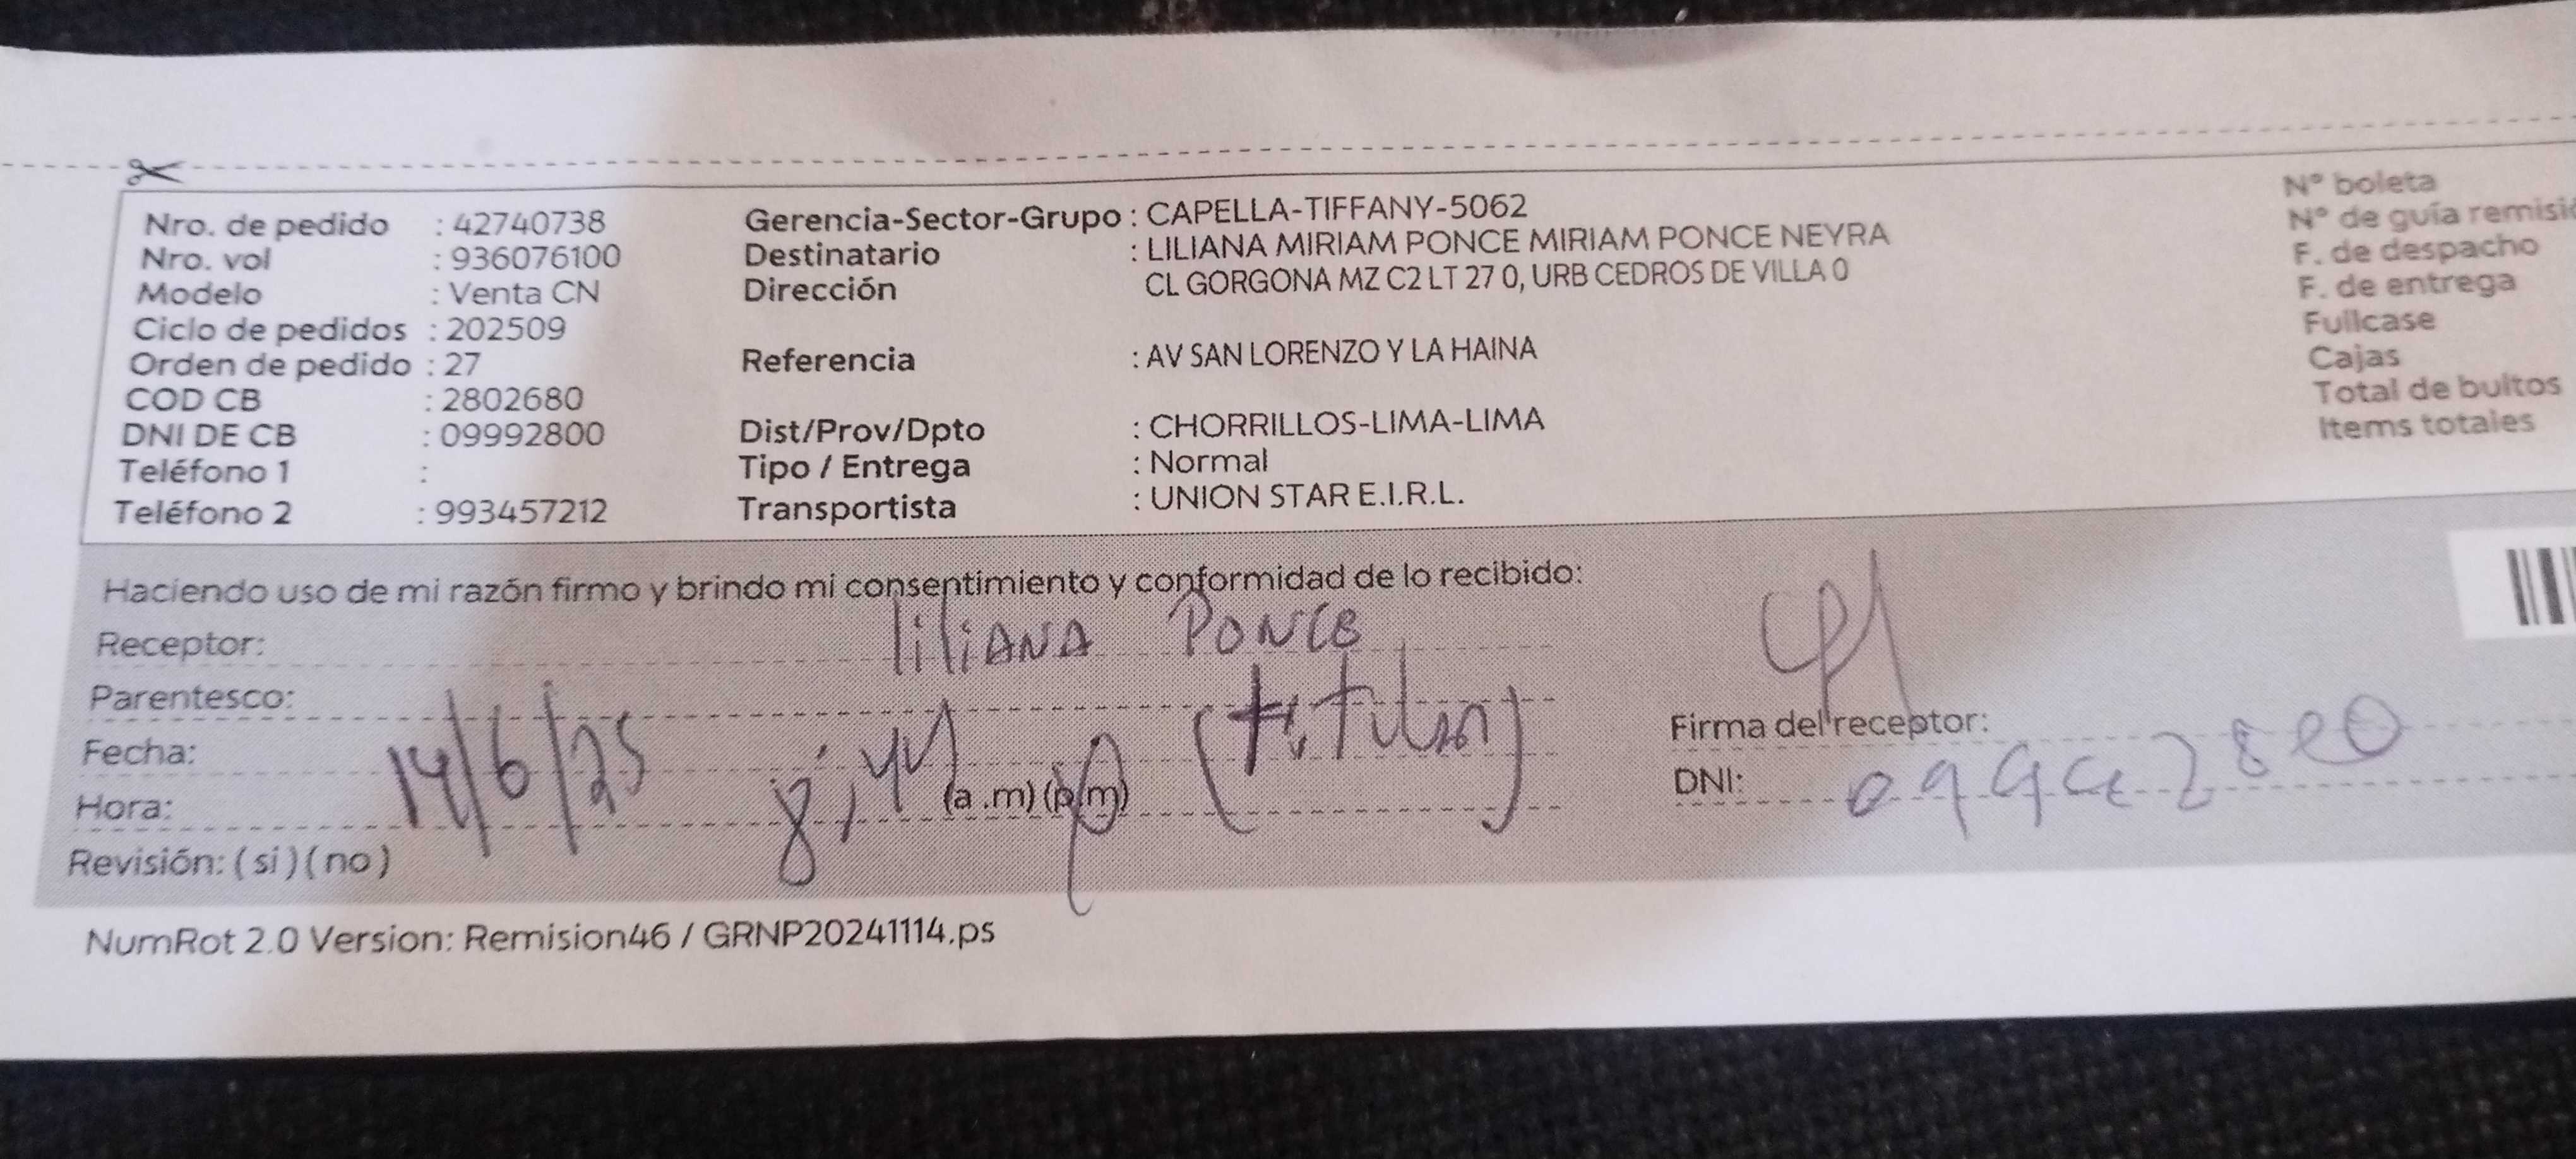 Nro. de pedido : 42740738
Nro. vol : 936076100
Modelo : Venta CN
Ciclo de pedidos : 202509
Orden de pedido : 27
COD CB : 2802680
DNI DE CB : 09992800
Teléfono 1 :
Teléfono 2 : 993457212
Gerencia-Sector-Grupo : CAPELLA-TIFFANY-5062
Destinatario : LILIANA MIRIAM PONCE MIRIAM PONCE NEYRA
Dirección CL GORGONA MZ C2 LT 27 0, URB CEDROS DE VILLA 0
Referencia : AV SAN LORENZO Y LA HAINA
Dist/Prov/Dpto : CHORRILLOS-LIMA-LIMA
Tipo / Entrega : Normal
Transportista : UNION STAR E.I.R.L.
N° boleta
N° de guía
F. de despacho
F. de entrega
Fullcase
Cajas
Total de bultos
Items totales
Haciendo uso de mi razón firmo y brindo mi consentimiento y conformidad de lo recibido:
Receptor: liliANA PONCE
Parentesco: (titular)
Fecha: 14/6/25
Hora: (a .m) (p.m)
Revisión: ( si ) ( no )
Firma del receptor:
DNI:
NumRot 2.0 Version: Remision46 / GRNP20241114.ps